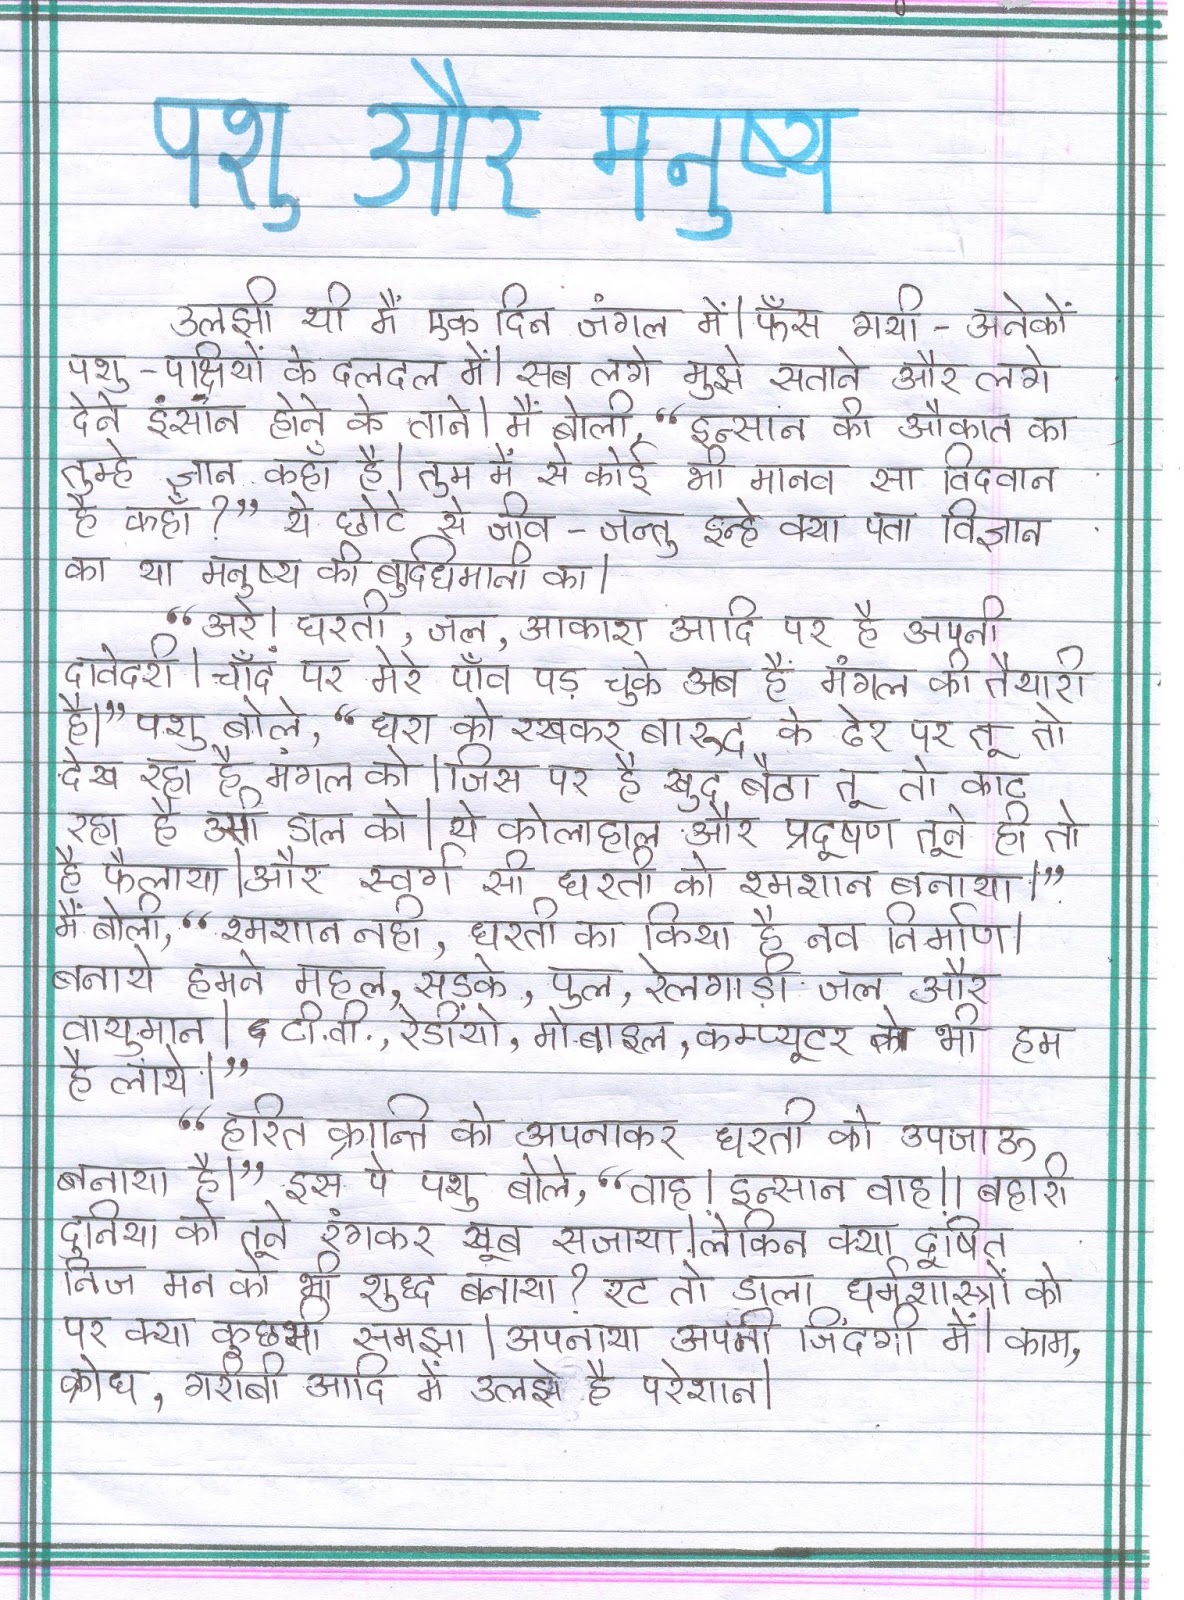 पशु और मनुष्य
उलझी थी मैं एक दिन जंगल में। फँस गयी - अनेकों
पशु - पक्षियों के दलदल में। सब लगे मुझे सताने और लगे
देने इंसान होने के ताने। मैं बोली, “इन्सान की औकात का
तुम्हे ज्ञान कहाँ है। तुम मैं से कोई भी मानव सा विदवान
है कहाँ?” ये छोटे से जीव - जन्तु इन्हे क्या पता विज्ञान
का या मनुष्य की बुद्धिमानी का।
“अरे। धरती, जल, आकाश आदि पर है अपनी
दावेदरी। चाँद पर मेरे पाँव पड़ चुके अब हैं मंगल की तैयारी
है।” पशु बोले, “धरा को रखकर बारूद के ढेर पर तू तो
देख रहा है मंगल को। जिस पर है खुद बैठा तू तो काट
रहा है उसी डाल को। ये कोलाहाल और प्रदूषण तूने ही तो
है फैलाया। और स्वर्ग सी धरती को श्मशान बनाया।”
मैं बोली, “श्मशान नही, धरती का किया है नव निर्माण।
बनाये हमने महल, सडके, पुल, रेलगाड़ी जल और
वायुमान। टी.वी., रेडीयो, मोबाइल, कम्प्यूटर भी हम
है लाये।”
“हरित क्रान्ति को अपनाकर धरती को उपजाऊ
बनाया है।” इस पे पशु बोले, “वाह! इन्सान वाह!! बहारी
दुनिया को तूने रंगकर खूब सजाया। लेकिन क्या दूषित
निज मन को भी शुद्ध बनाया? रट तो डाला धर्मशास्त्रों को
पर क्या कुछ भी समझा। अपनाया अपनी जिंदगी में। काम,
क्रोध, गरीबी आदि में उलझे है परेशान।